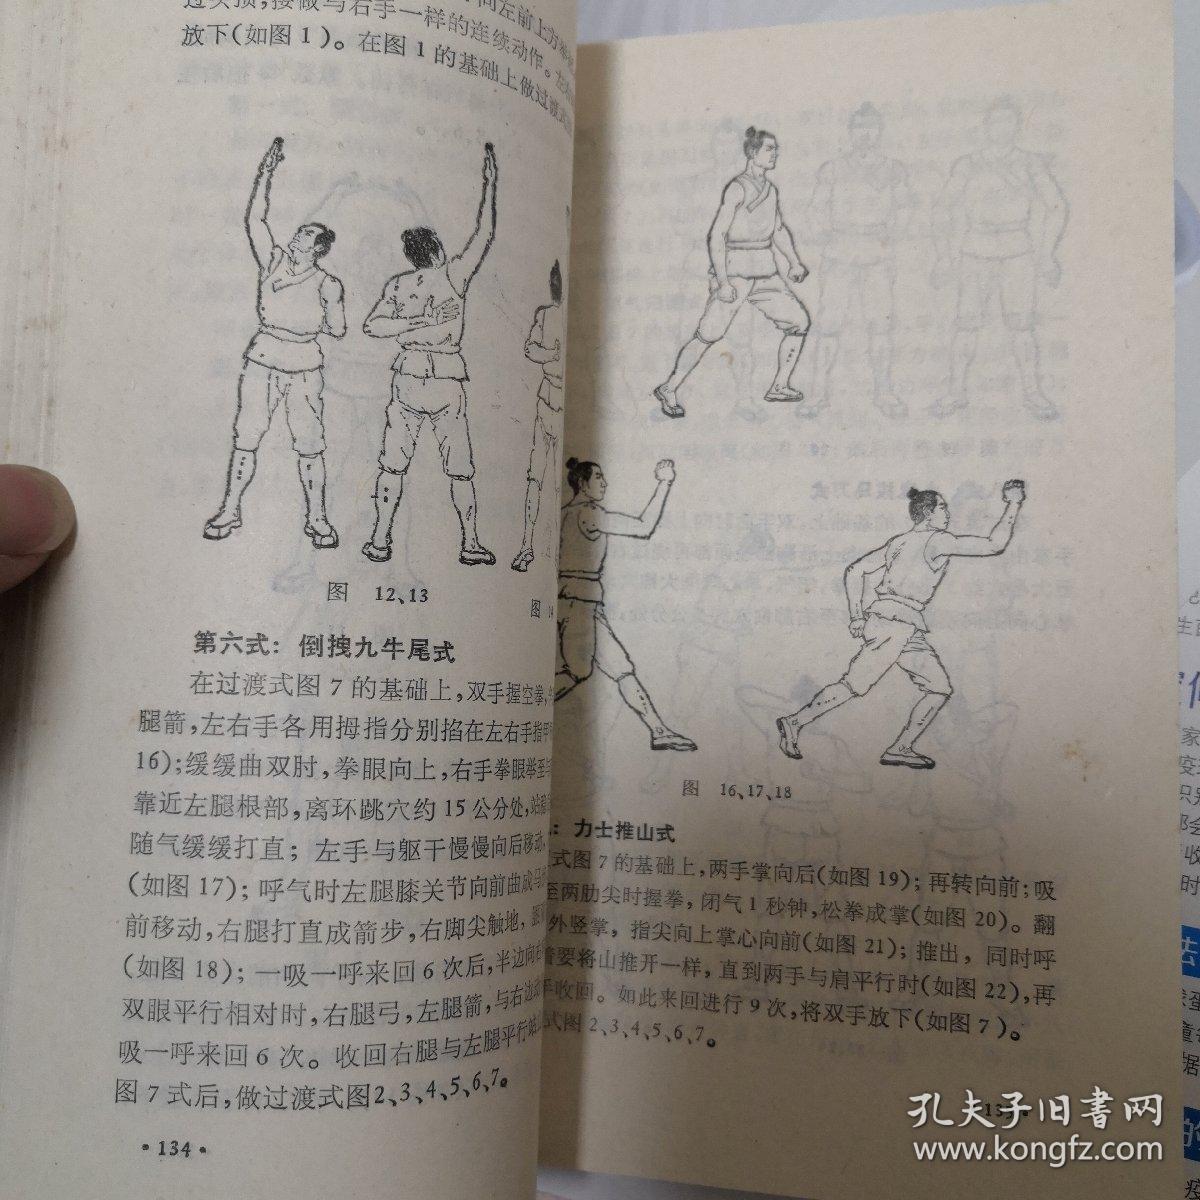 向左前上方举
过头顶,接做与右手一样的连续动作。左
放下(如图1)。在图1的基础上做过渡式
图 12、13
图 14
第六式：倒拽九牛尾式
在过渡式图7的基础上,双手握空拳,
腿箭,左右手各用拇指分别掐在左右手指甲
16);缓缓曲双肘,拳眼向上,右手拳眼举至
靠近左腿根部,离环跳穴约15公分处,站
随气缓缓打直；左手与躯干慢慢向后移动,
(如图17)；呼气时左腿膝关节向前曲成马
前移动,右腿打直成箭步,右脚尖触地,
(如图18)；一吸一呼来回6次后,半边向
双眼平行相对时,右腿弓,左腿箭,与右边
吸一呼来回6次。收回右腿与左腿平行站
图7式后,做过渡式图2、3、4、5、6、7。
·134·
图 16、17、18
：力士推山式
式图7的基础上,两手掌向后(如图19)；再转向前；吸
至两肋尖时握拳,闭气1秒钟,松拳成掌(如图20)。翻
外竖掌,指尖向上掌心向前(如图21)；推出,同时呼
着要将山推开一样,直到两手与肩平行时(如图22),再
手收回。如此来回进行9次,将双手放下(如图7)。
式图2、3、4、5、6、7。
孔夫子旧书网
www.kongfz.com